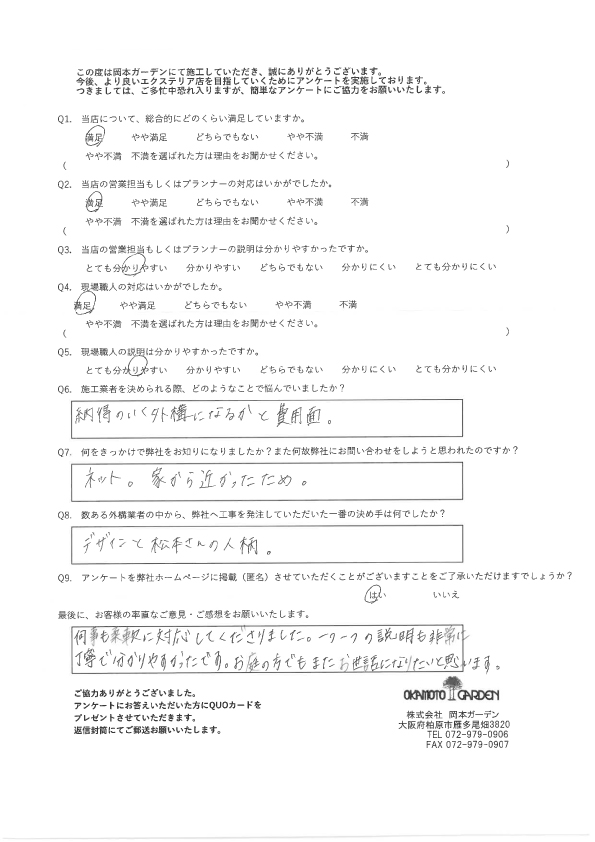 この度は岡本ガーデンにて施工していただき、誠にありがとうございます。
今後、より良いエクステリア店を目指していくためにアンケートを実施しております。
つきましては、ご多忙中恐れ入りますが、簡単なアンケートにご協力をお願いいたします。
Q1. 当店について、総合的にどのくらい満足していますか。
満足 やや満足 どちらでもない やや不満 不満
やや不満 不満を選ばれた方は理由をお聞かせください。
( )
Q2. 当店の営業担当もしくはプランナーの対応はいかがでしたか。
満足 やや満足 どちらでもない やや不満 不満
やや不満 不満を選ばれた方は理由をお聞かせください。
( )
Q3. 当店の営業担当もしくはプランナーの説明は分かりやすかったですか。
とても分かりやすい 分かりやすい どちらでもない 分かりにくい とても分かりにくい
Q4. 現場職人の対応はいかがでしたか。
満足 やや満足 どちらでもない やや不満 不満
やや不満 不満を選ばれた方は理由をお聞かせください。
( )
Q5. 現場職人の説明は分かりやすかったですか。
とても分かりやすい 分かりやすい どちらでもない 分かりにくい とても分かりにくい
Q6. 施工業者を決められる際、どのようなことで悩んでいましたか？
納得のいく外構になるかと費用面。
Q7. 何をきっかけで弊社をお知りになりましたか？また何故弊社にお問い合わせをしようと思われたのですか？
ネット。家から近かったため。
Q8. 数ある外構業者の中から、弊社へ工事を発注していただいた一番の決め手は何でしたか？
デザインと松本さんの人柄。
Q9. アンケートを弊社ホームページに掲載（匿名）させていただくことがございますことをご了承いただけますでしょうか？
はい いいえ
最後に、お客様の率直なご意見・ご感想をお願いいたします。
何事も柔軟に対応してくださりました。一つ一つの説明も非常に
丁寧で分かりやすかったです。お庭の方でもまたお世話になりたいと思います。
ご協力ありがとうございました。
アンケートにお答えいただいた方にQUOカードを
プレゼントさせていただきます。
返信封筒にてご郵送お願いいたします。
OKAMOTO GARDEN
株式会社 岡本ガーデン
大阪府柏原市雁多尾畑3820
TEL 072-979-0906
FAX 072-979-0907